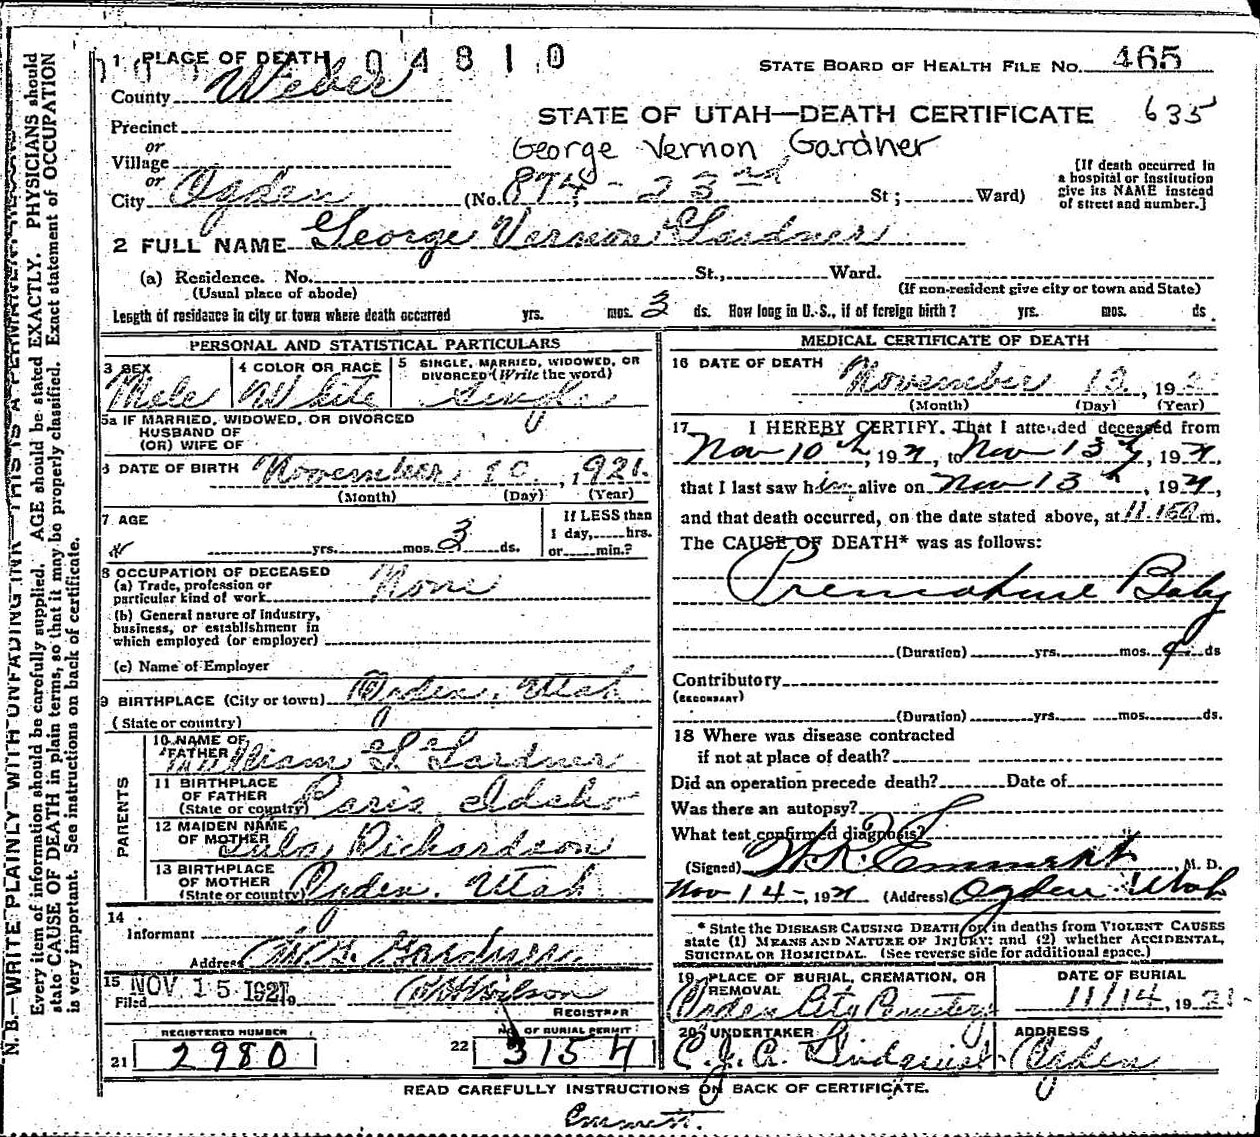 N.B.—WRITE PLAINLY WITH UNFADING INK—THIS IS A PERMANENT RECORD
Every item of information should be carefully supplied. AGE should be stated EXACTLY. PHYSICIANS should
state CAUSE OF DEATH in plain terms, so that it may be properly classified. Exact statement of OCCUPATION
is very important. See instructions on back of certificate.
1 PLACE OF DEATH 04810
STATE BOARD OF HEALTH FILE No. 465
County Weber
STATE OF UTAH—DEATH CERTIFICATE 635
Precinct
or
George Vernon Gardner
Village
or
City Ogden (No. 874 - 23rd St; Ward)
[If death occurred in
a hospital or institution
give its NAME instead
of street and number.]
2 FULL NAME George Vernon Gardner
(a) Residence. No. St., Ward.
(Usual place of abode) (If non-resident give city or town and State)
Length of residence in city or town where death occurred yrs. mos. 3 ds. How long in U.S., if of foreign birth? yrs. mos. ds.
PERSONAL AND STATISTICAL PARTICULARS
3 SEX Male
4 COLOR OR RACE White
5 SINGLE, MARRIED, WIDOWED, OR
DIVORCED (Write the word) Single
5a IF MARRIED, WIDOWED, OR DIVORCED
HUSBAND OF
(OR) WIFE OF
6 DATE OF BIRTH November 10, 1921.
(Month) (Day) (Year)
7 AGE
yrs. mos. 3 ds.
If LESS than
1 day, hrs.
or min.?
8 OCCUPATION OF DECEASED
(a) Trade, profession or
particular kind of work None
(b) General nature of industry,
business, or establishment in
which employed (or employer)
(c) Name of Employer
9 BIRTHPLACE (City or town) Ogden, Utah
(State or country)
PARENTS
10 NAME OF
FATHER William S Gardner
11 BIRTHPLACE
OF FATHER
(State or country) Paris Idaho
12 MAIDEN NAME
OF MOTHER Lula Richardson
13 BIRTHPLACE
OF MOTHER
(State or country) Ogden, Utah
14
Informant
Address W.S. Gardner
15
Filed NOV 15 1921 Wilson
REGISTRAR
REGISTERED NUMBER
21 2980
No. OF BURIAL PERMIT
22 3154
MEDICAL CERTIFICATE OF DEATH
16 DATE OF DEATH November 13, 192
(Month) (Day) (Year)
17 I HEREBY CERTIFY. That I attended deceased from
Nov 10th, 1921, to Nov 13th, 1921,
that I last saw him alive on Nov 13th, 1921,
and that death occurred, on the date stated above, at m.
The CAUSE OF DEATH* was as follows:
Premature Baby
(Duration) yrs. mos. ds
Contributory
(SECONDARY)
(Duration) yrs. mos. ds.
18 Where was disease contracted
if not at place of death?
Did an operation precede death? Date of
Was there an autopsy?
What test confirmed diagnosis?
(Signed) M. D.
Nov 14-, 1921 (Address) Ogden Utah
* State the DISEASE CAUSING DEATH or in deaths from VIOLENT CAUSES
state (1) MEANS AND NATURE OF INJURY: and (2) whether ACCIDENTAL,
SUICIDAL OR HOMICIDAL. (See reverse side for additional space.)
19 PLACE OF BURIAL, CREMATION, OR
REMOVAL
Ogden City Cemetery
DATE OF BURIAL
11/14, 1921
20 UNDERTAKER
C.J.A. Lindquist
ADDRESS
Ogden
READ CAREFULLY INSTRUCTIONS ON BACK OF CERTIFICATE.
Emmett.